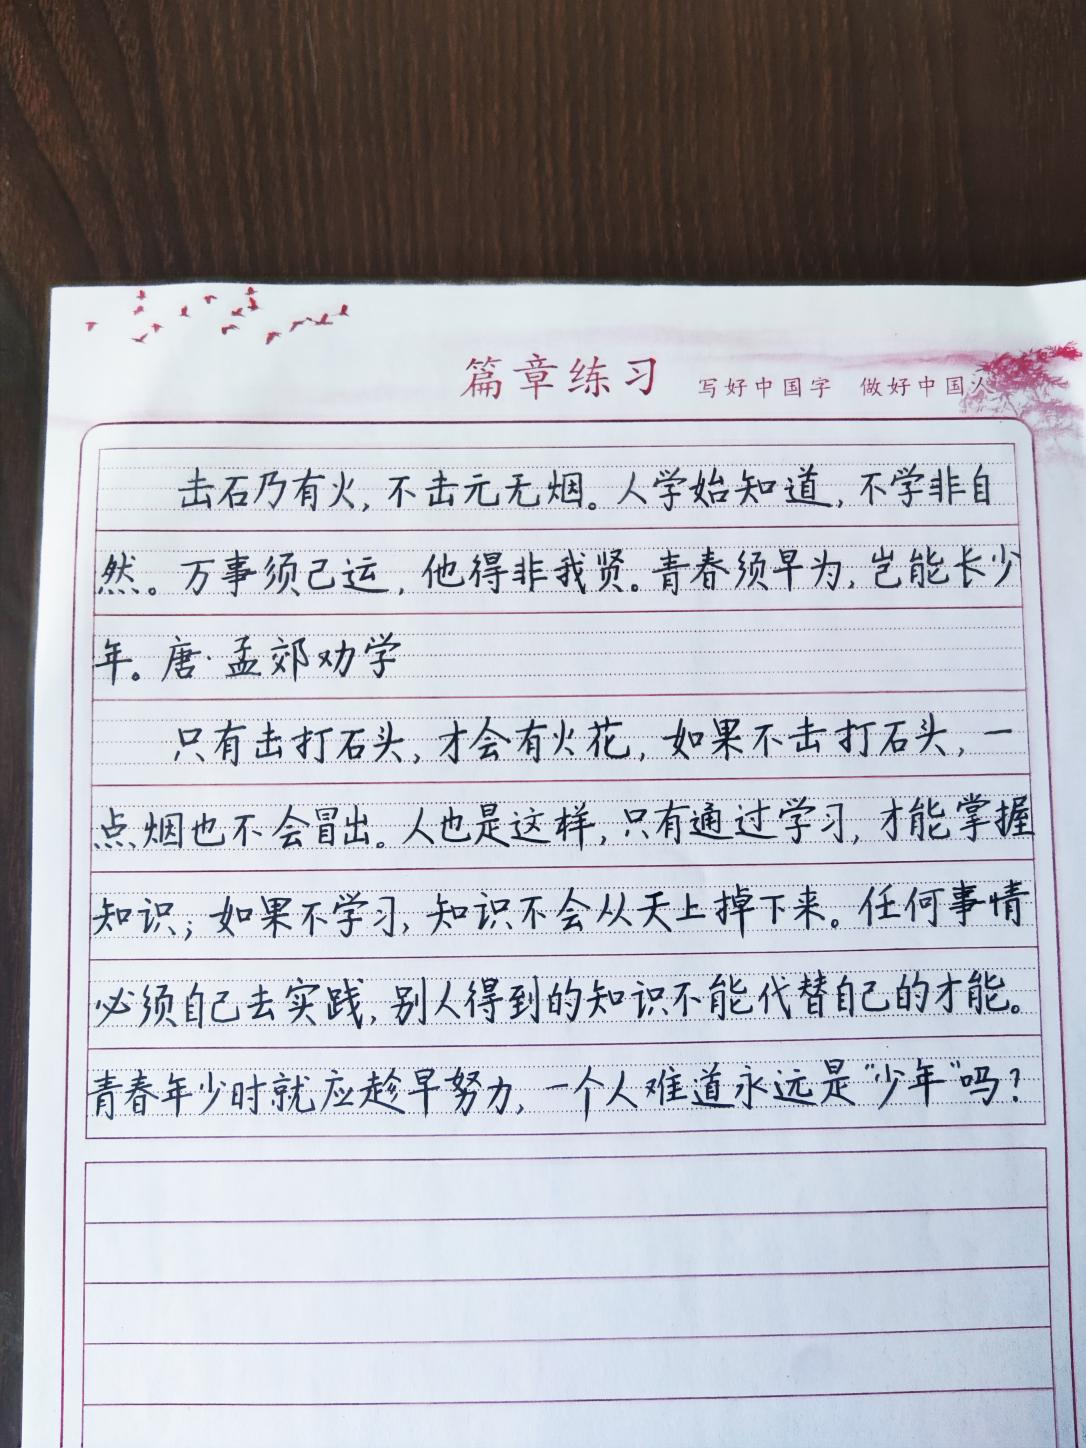 篇章练习 写好中国字 做好中国人
击石乃有火,不击元无烟。人学始知道,不学非自
然。万事须己运,他得非我贤。青春须早为,岂能长少
年。唐·孟郊劝学
只有击打石头,才会有火花,如果不击打石头,一
点烟也不会冒出。人也是这样,只有通过学习,才能掌握
知识;如果不学习,知识不会从天上掉下来。任何事情
必须自己去实践,别人得到的知识不能代替自己的才能。
青春年少时就应趁早努力,一个人难道永远是“少年”吗?